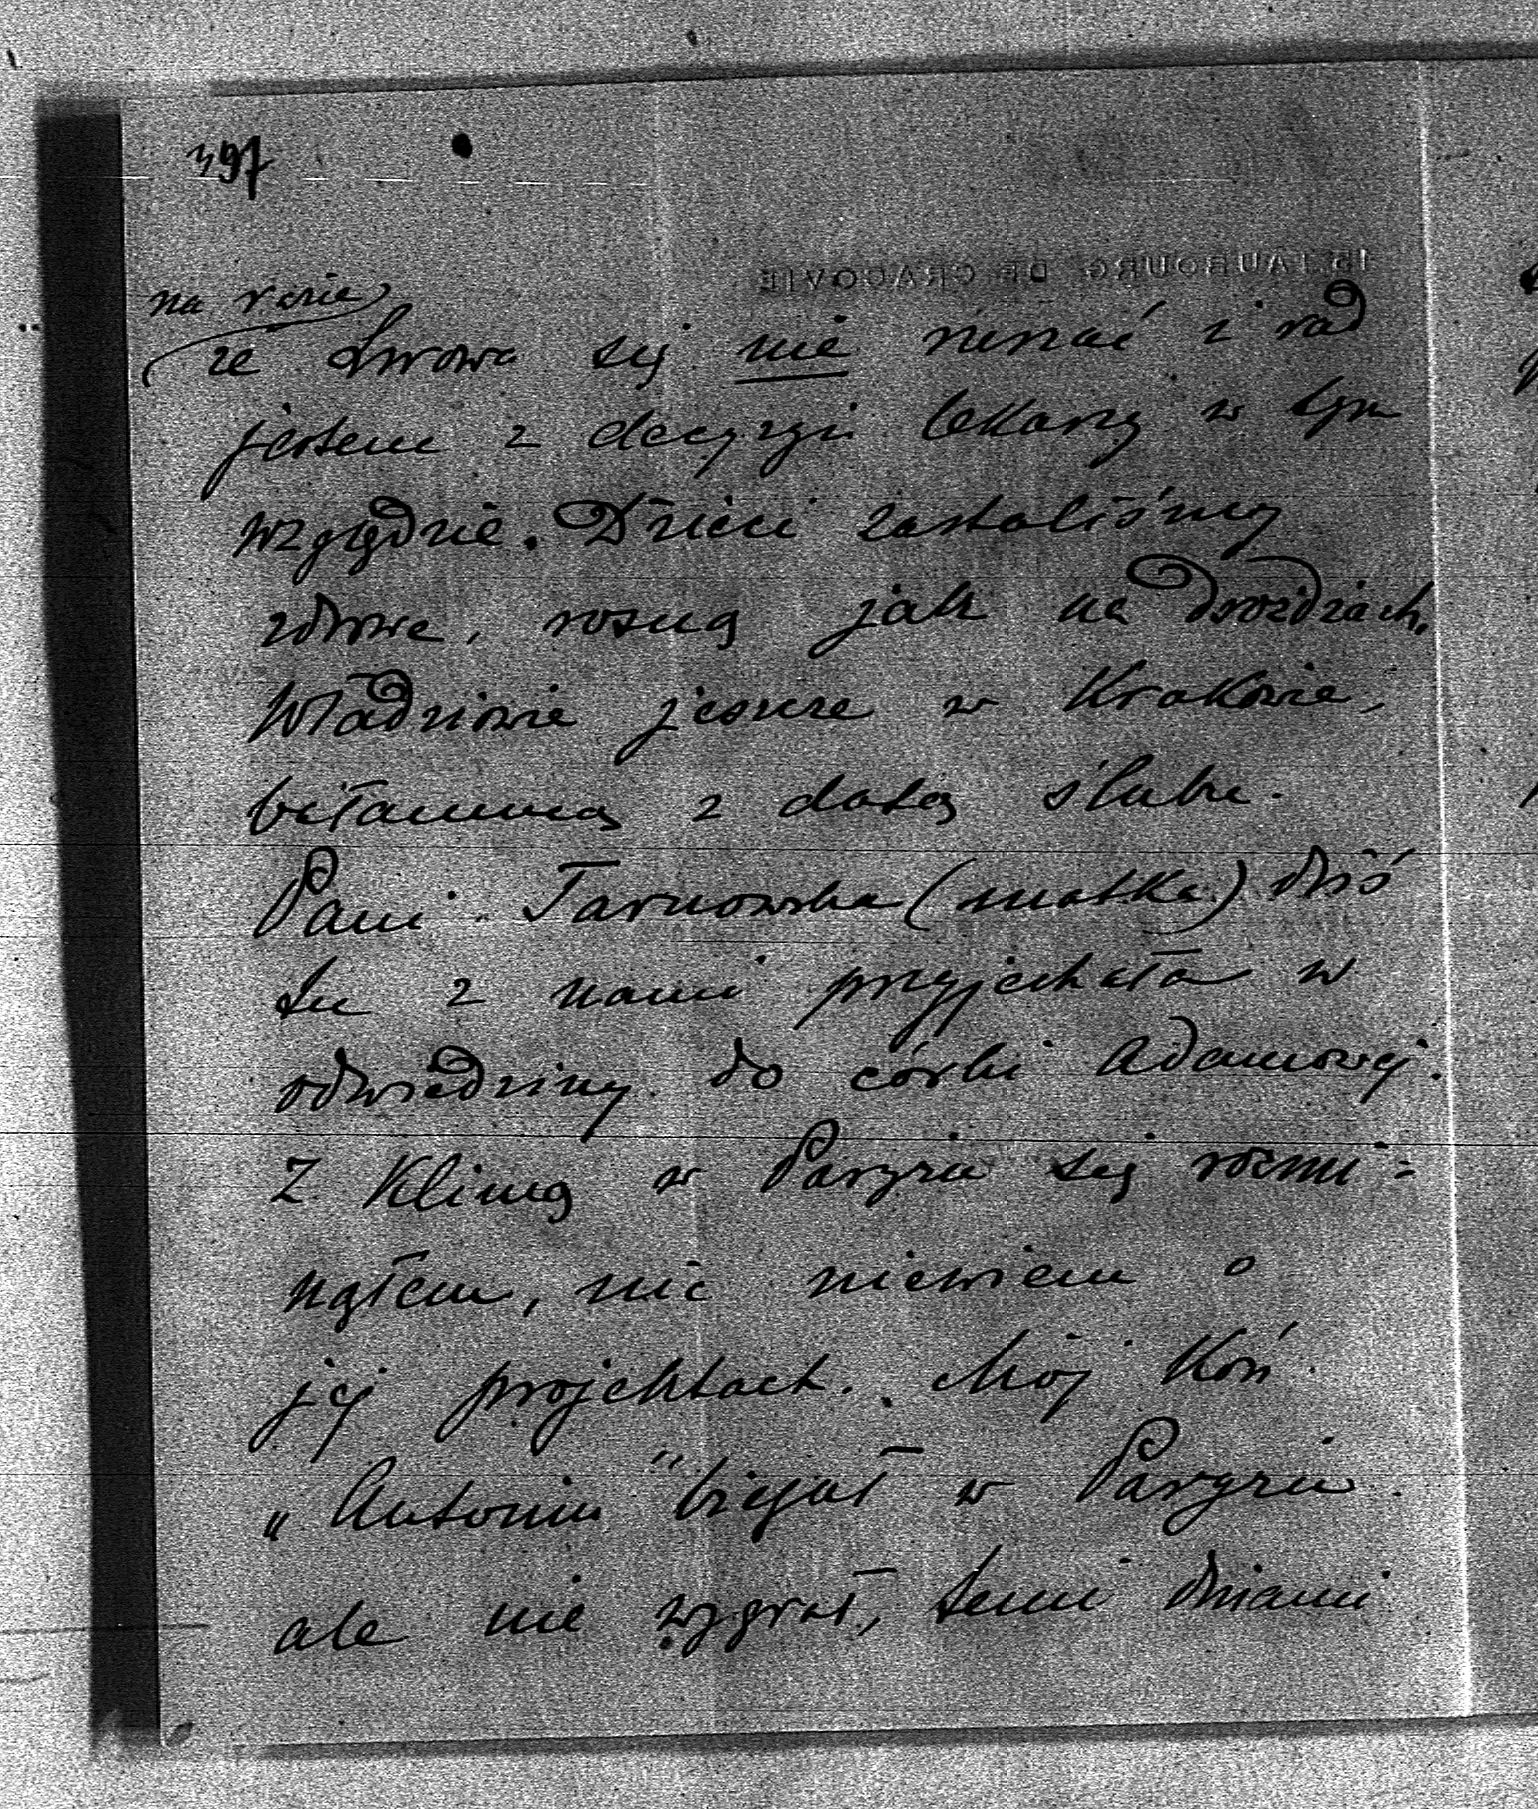 397
15 FAUBOURG DE CRACOVIE
na razie
ze Lwowa się nie ruszać i rad
jestem z decyzyi lekarzy w tym
względzie. Dzieci zastaliśmy
zdrowe, rosną jak na drożdżach.
Władziowie jeszcze w Krakowie,
z datą ślubu.
Pani Tarnowska (matka) dziś
tu z nami przyjechała w
odwiedziny do córki Adamowej.
Z Klimą w Paryżu się rozmi=
nąłem, nic niewiem o
jej projektach. Mój Koń
„Antonin" biegał w Paryżu
ale nie wygrał, temi dniami